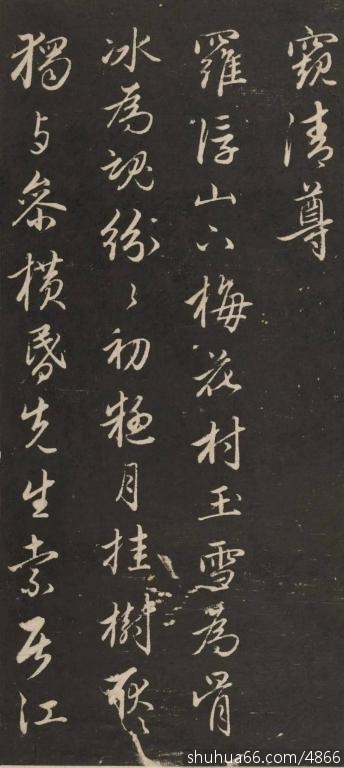 窺清尊
羅浮山下梅花村玉雪為骨
冰為魂紛〻初疑月挂樹耿〻
獨与參橫昬先生索居江
shuhua66.com/4866